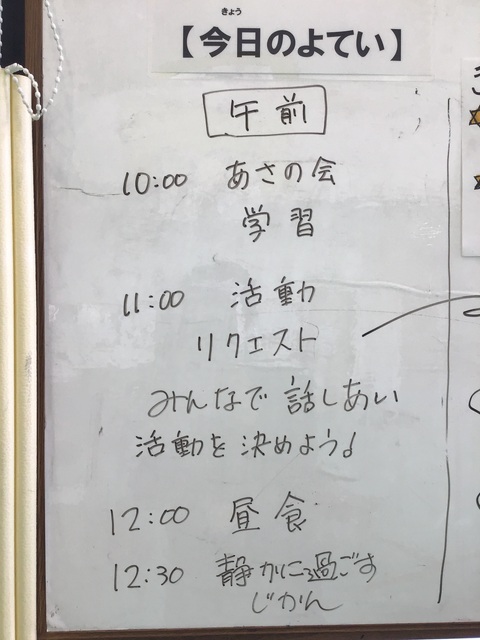 きょう
【今日のよてい】
午前
10:00 あさの会
学習
11:00 活動
リクエスト
みんなで 話しあい
活動を決めよう♪
12:00 昼食
12:30 静かに過ごす
じかん